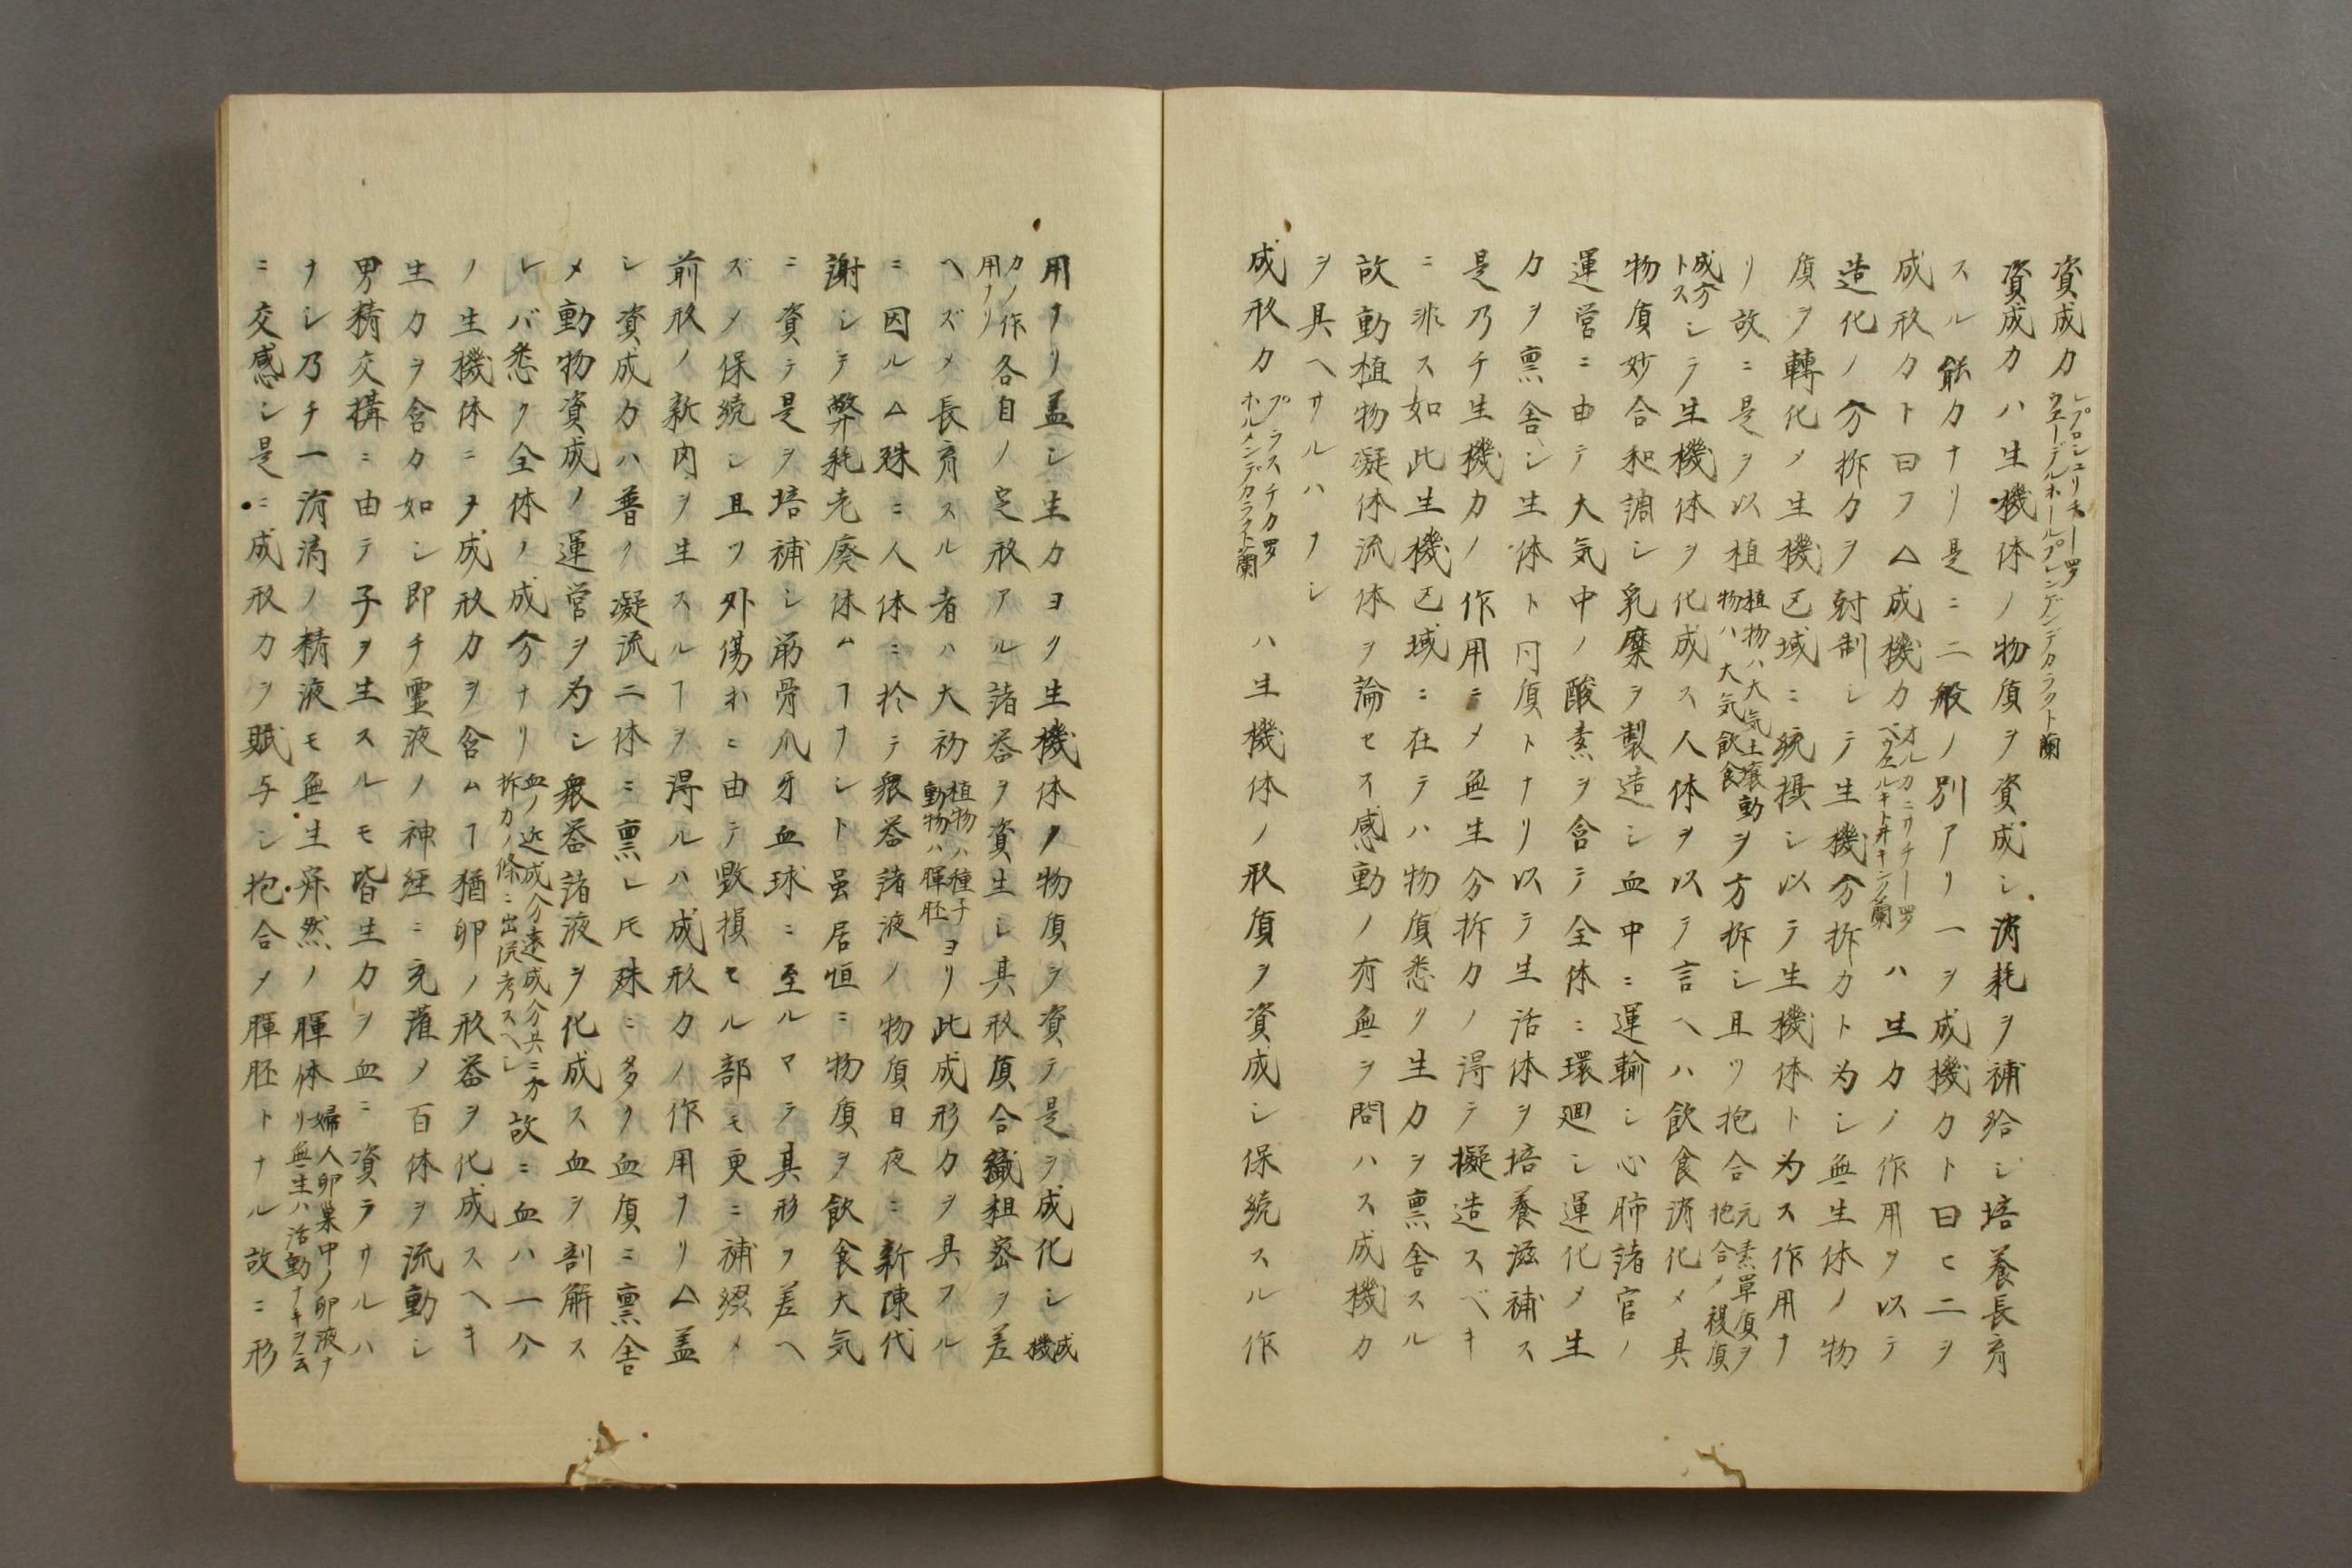 資成力 レプロシユリチー羅 ウエーデルホールブレンゲンデカラクト蘭
資成力ハ生機体ノ物質ヲ資成シ消耗ヲ補給シ培養長育
スル能力ナリ是ニ二般ノ別アリ一ヲ成機力ト曰ヒ二ヲ
成形力ト曰フ△成機力 オルカニサチー羅 ベウエルキトイキング蘭 ハ生力ノ作用ヲ以テ
造化ノ分拆力ヲ尅制シテ生機分拆力ト为シ無生体ノ物
質ヲ轉化メ生機区域ニ統摂シ以テ生機体ト为ス作用ナ
リ故ニ是ヲ以植 植物ハ大気土壌動 物ハ大気飲食 ヲ方拆シ且ツ抱合 元素単質ヲ 抱合メ複質
成分 トス シテ生機体ヲ化成ス人体ヲ以テ言ヘハ飲食消化メ其
物質妙合和調シ乳糜ヲ製造シ血中ニ運輸シ心肺諸官ノ
運営ニ由テ大気中ノ酸素ヲ含テ全体ニ環廻シ運化メ生
力ヲ禀舎シ生体ト同質トナリ以テ生活体ヲ培養滋補ス
是乃チ生機力ノ作用ニメ無生分拆力ノ得テ擬造スベキ
ニ非ス如此生機区域ニ在テハ物質悉ク生力ヲ禀舎スル
故動植物凝体流体ヲ論セス感動ノ有無ヲ問ハス成機力
ヲ具ヘサルハナシ
成形力 プラスチカ羅 ホルメンデカラクト蘭 ハ生機体ノ形質ヲ資成シ保続スル作
用ナリ盖シ生力ヨク生機体ノ物質ヲ資テ是ヲ成化シ 成 機
力ノ作 用ナリ 各自ノ定形アル諸器ヲ資生シ其形質合織粗密ヲ差
ヘズメ長育スル者ハ大初 植物ハ種子 動物ハ腪胚 ヨリ此成形力ヲ具フル
ニ因ル△殊ニ人体ニ於テ衆器諸液ノ物質日夜ニ新陳代
謝シテ弊耗老廃休ムヿナシト虽居恒ニ物質ヲ飲食大気
ニ資テ是ヲ培補シ筋骨爪牙血球ニ至ルマテ其形ヲ差ヘ
ズメ保続シ且ツ外傷ホニ由テ毀損セル部モ更ニ補綴メ
前形ノ新肉ヲ生スルヿヲ得ルハ成形力ノ作用ナリ△盖
シ資成力ハ普ク凝流二体ニ禀レ𪜈殊ニ多ク血質ニ禀舎
メ動物資成ノ運営ヲ为シ衆器諸液ヲ化成ス血ヲ剖解ス
レバ悉ク全体ノ成分ナリ 血ノ近成分遠成分共ニ分 拆力ノ條ニ出次考スヘシ 故ニ血ハ一个
ノ生機体ニヲ成形力ヲ含ムヿ猶卵ノ形器ヲ化成スヘキ
生力ヲ含力如シ即チ霊液ノ神経ニ充灌メ百体ヲ流動シ
男精交搆ニ由テ子ヲ生スルモ皆生力ヲ血ニ資ラサルハ
ナシ乃チ一涓滴ノ精液モ無生舜然ノ腪体 婦人卵巣中ノ卵液ナ リ無生ハ活動ナキヲ云
ニ交感シ是ニ成形力ヲ賦与シ抱合メ腪胚トナル故ニ形